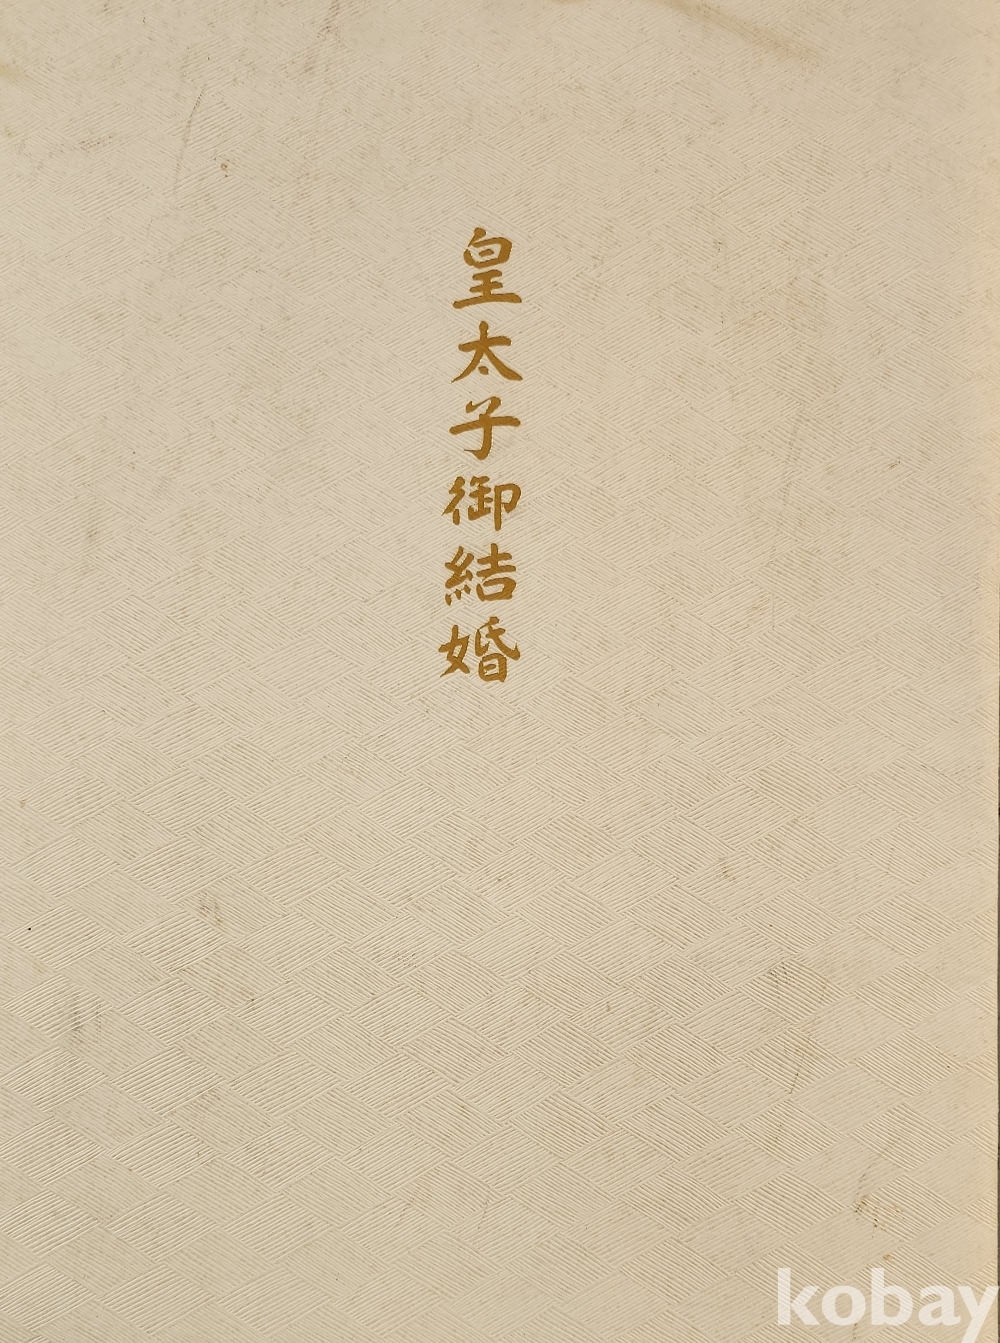 皇太子御結婚
kobay